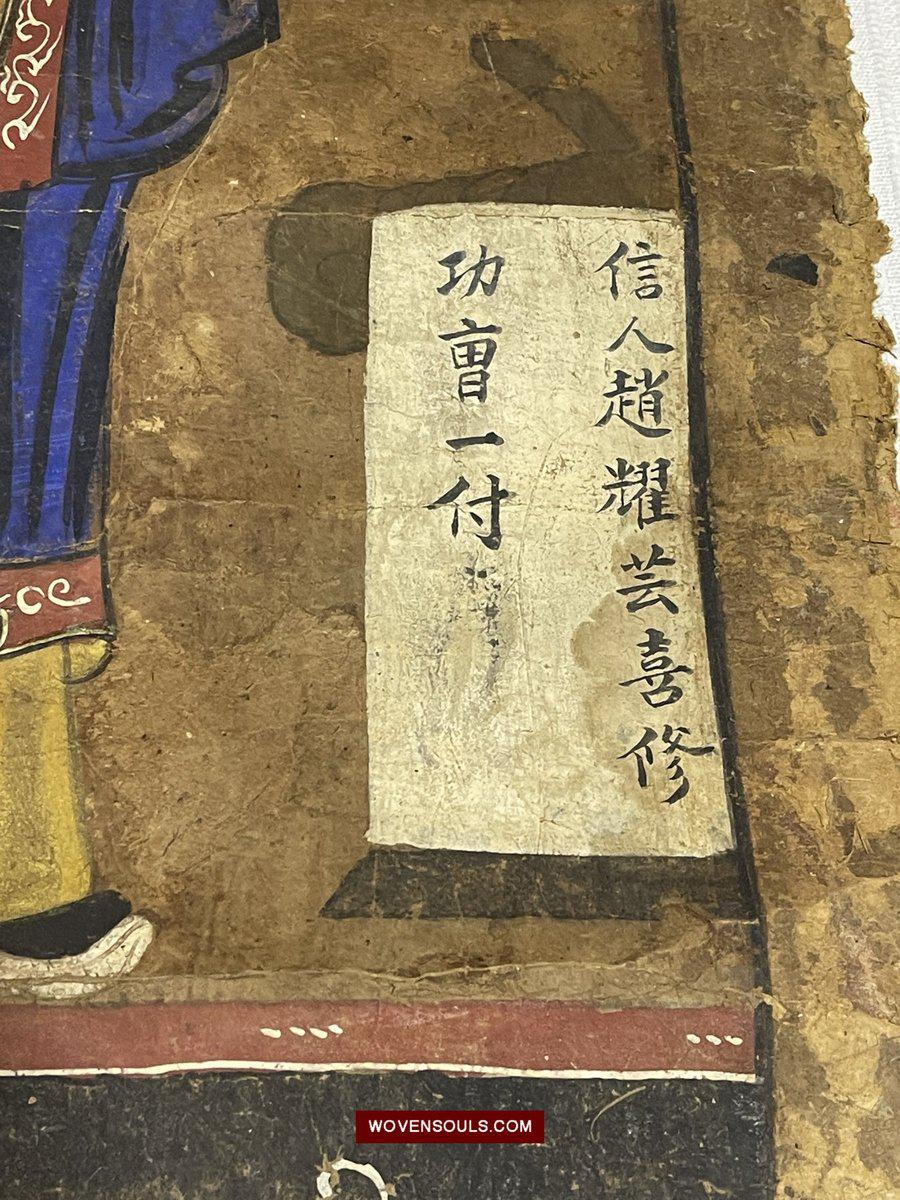 信人趙耀芸喜修
功曺一付
WOVENSOULS.COM